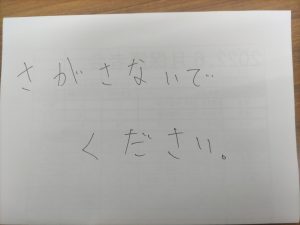 さがさないで
ください。